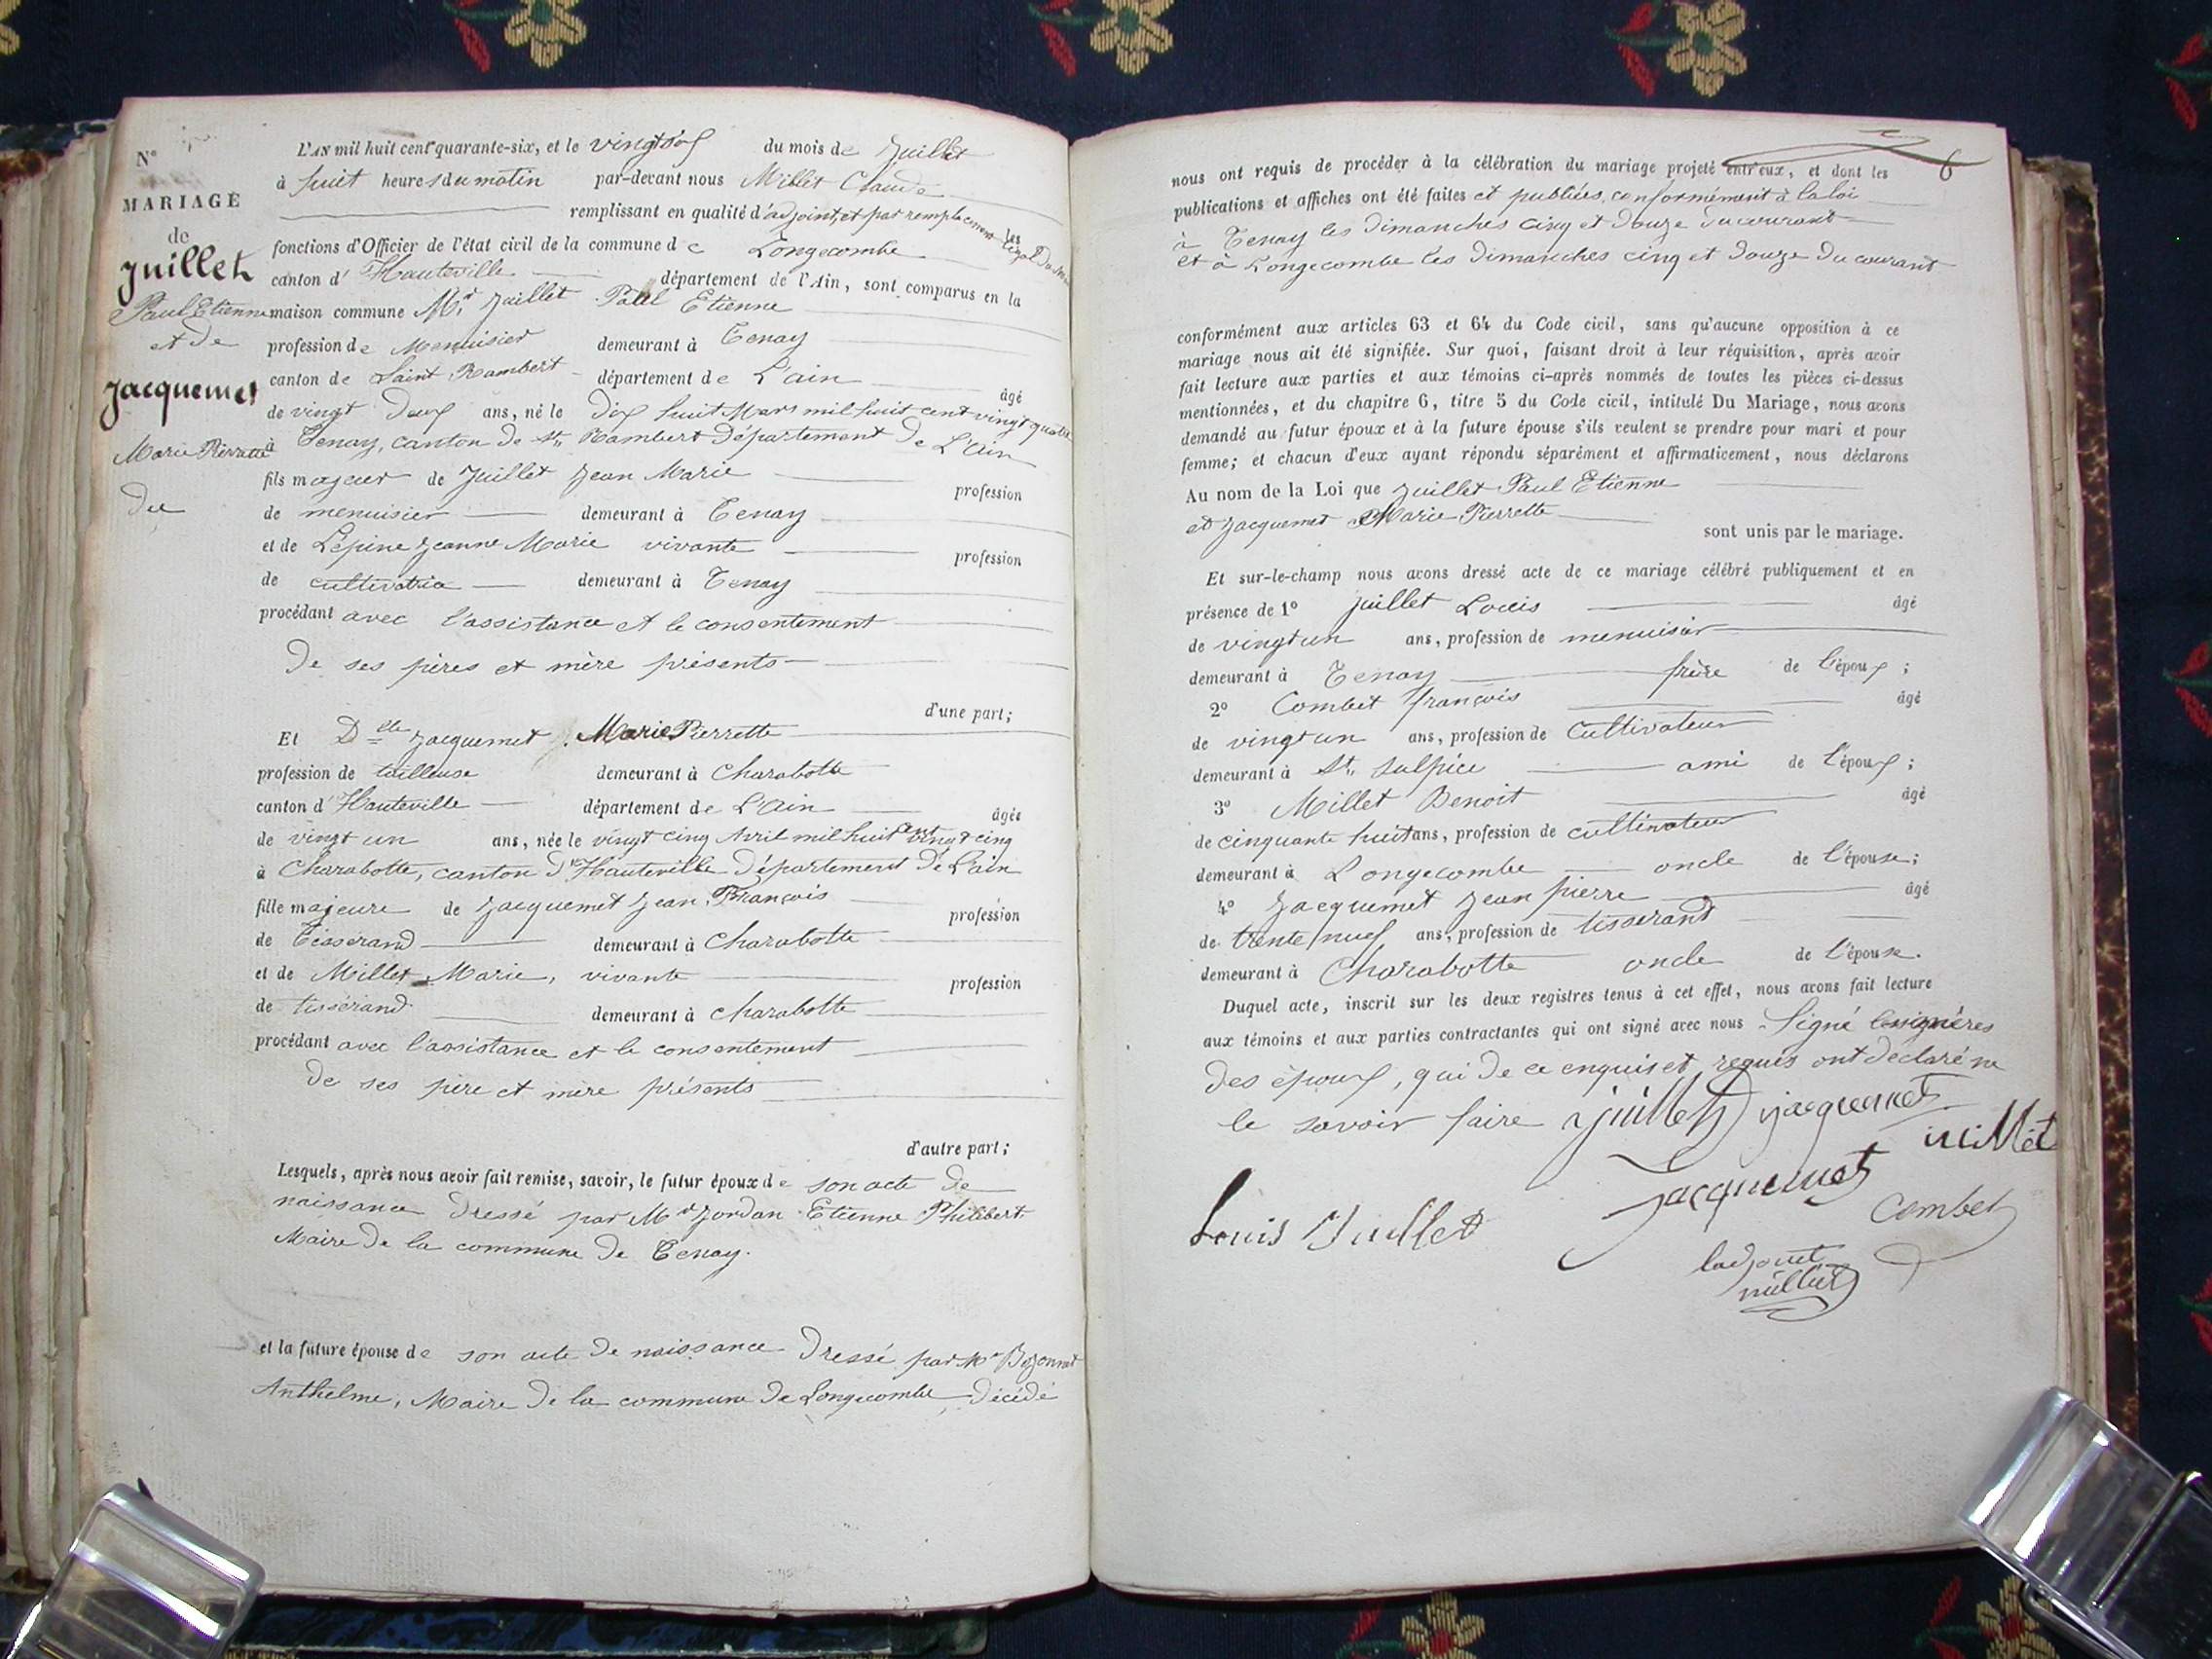 N°
MARIAGE
de
Juillet
Paul Etienne
et de
Jacquemet
Marie Pierrette
Du
L'AN mil huit cent quarante-six, et le du mois de Juillet
à huit heures du matin par-devant nous Millet Claude
remplissant en qualité d'adjoint, et par remplacement les
fonctions d'Officier de l'état civil de la commune de Longecombe
canton d'Hauteville département de l'Ain, sont comparus en la
maison commune Mr Juillet Paul Etienne
profession de Menuisier demeurant à Tenay
canton de Saint Rambert département de L'ain âgé
de vingt deux ans, né le dix huit Mars mil huit cent vingt quatre
à Tenay, canton de St Rambert Département de L'Ain
fils majeur de Juillet Jean Marie profession
de menuisier demeurant à Tenay
et de Lépine Jeanne Marie vivante profession
de cultivatrice demeurant à Tenay
procédant avec l'assistance et le consentement
De ses pères et mère présents
d'une part;
Et Delle Jacquemet Marie Pierrette
profession de tailleuse demeurant à Charabotte
canton d'Hauteville département de L'Ain âgée
de vingt un ans, née le vingt cinq Avril mil huit cent vingt cinq
à Charabotte, canton d'Hauteville Département de L'ain
fille majeure de Jacquemet Jean François profession
de Tisserand demeurant à Charabotte
et de Millet Marie, vivante profession
de tisserand demeurant à Charabotte
procédant avec l'assistance et le consentement
De ses père et mère présents
d'autre part;
Lesquels, après nous avoir fait remise, savoir, le futur époux de son acte de
naissance Dressé par Mr Jordan Etienne Philibert
Maire de la commune de Tenay.
et la future épouse de son acte de naissance Dressé par Mr
Anthelme, Maire de la commune de Longecombe décédé
6
nous ont requis de procéder à la célébration du mariage projeté entr'eux, et dont les
publications et affiches ont été faites et publiées conformément à la loi
à Tenay les dimanches cinq et douze du courant
et à Longecombe les dimanches cinq et douze du courant
conformément aux articles 63 et 64 du Code civil, sans qu'aucune opposition à ce
mariage nous ait été signifiée. Sur quoi, faisant droit à leur réquisition, après avoir
fait lecture aux parties et aux témoins ci-après nommés de toutes les pièces ci-dessus
mentionnées, et du chapitre 6, titre 5 du Code civil, intitulé Du Mariage, nous avons
demandé au futur époux et à la future épouse s'ils veulent se prendre pour mari et pour
femme; et chacun d'eux ayant répondu séparément et affirmativement, nous déclarons
Au nom de la Loi que Juillet Paul Etienne
et Jacquemet Marie Pierrette
sont unis par le mariage.
Et sur-le-champ nous avons dressé acte de ce mariage célébré publiquement et en
présence de 1° Juillet Louis âgé
de vingt un ans, profession de menuisier
demeurant à Tenay frère de l'époux;
2° Combet françois âgé
de vingt un ans, profession de Cultivateur
demeurant à St Sulpice ami de l'époux;
3° Millet Benoit âgé
de cinquante huit ans, profession de cultivateur
demeurant à Longecombe oncle de l'épouse;
4° Jacquemet Jean pierre âgé
de trente neuf ans, profession de tisserand
demeurant à Charabotte oncle de l'épouse.
Duquel acte, inscrit sur les deux registres tenus à cet effet, nous avons fait lecture
aux témoins et aux parties contractantes qui ont signé avec nous Signé
Des époux, qui de ce enquis et requis ont déclaré ne
le savoir faire Juillet Jacquemet
Millet
Jacquemet
Louis Juillet
Combet
ladjouet